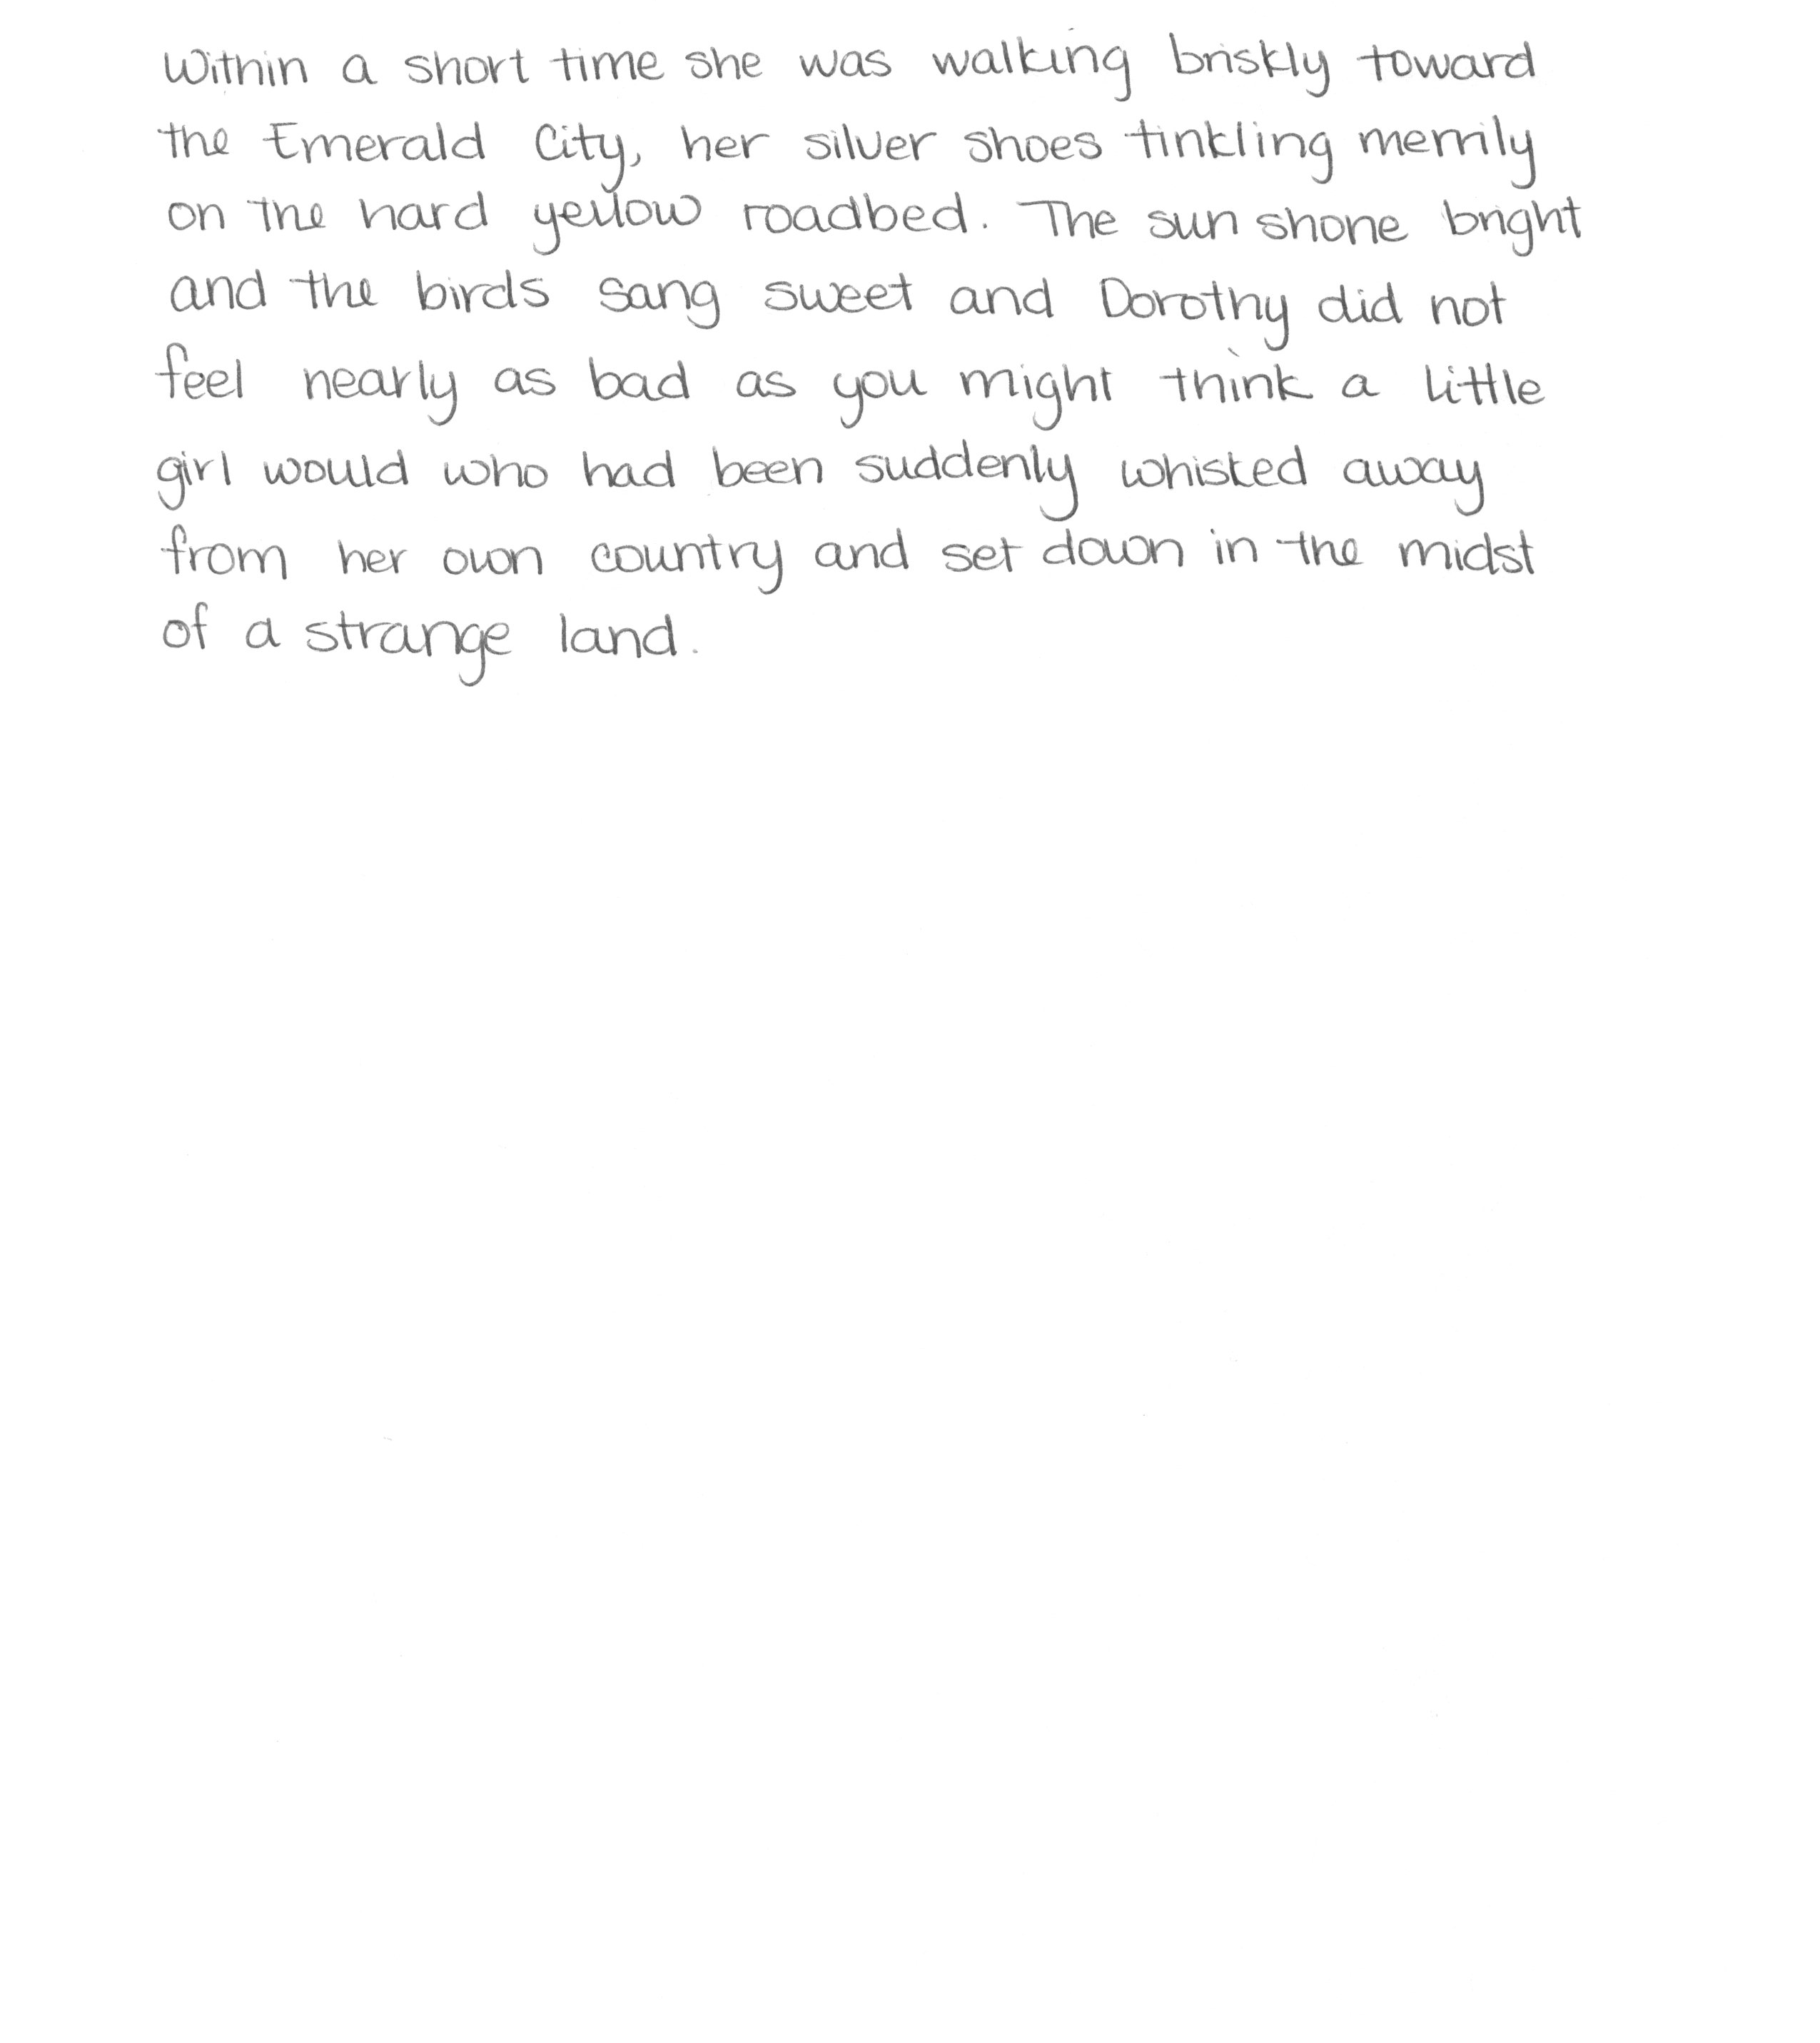 Within a short time she was walking briskly toward
the Emerald City, her silver shoes tinkling merrily
on the hard yellow roadbed. The sun shone bright
and the birds sang sweet and Dorothy did not
feel nearly as bad as you might think a little
girl would who had been suddenly whisked away
from her own country and set down in the midst
of a strange land.